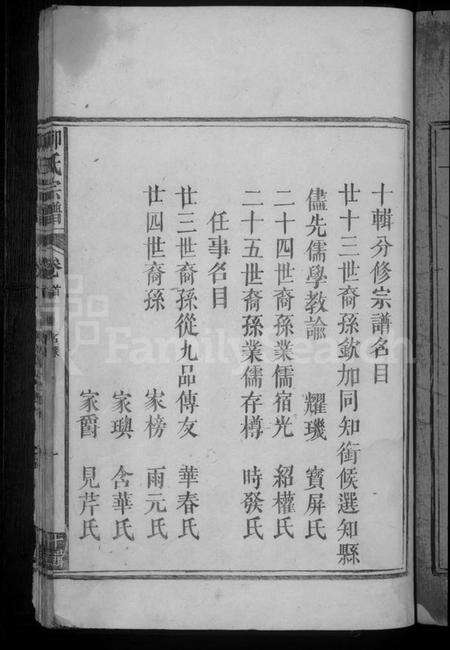 十輯分修宗譜名目
廿十三世裔孫欽加同知銜候選知縣
儘先儒學教諭 耀璣 寶屏氏
二十四世裔孫業儒宿光 紹權氏
二十五世裔孫業儒存樽 時發氏
任事名目
廿三世裔孫從九品傳友 華春氏
廿四世裔孫 家榜 雨元氏
家璵 含華氏
家霤 見芹氏
柳氏宗譜 卷首
FamilySearch